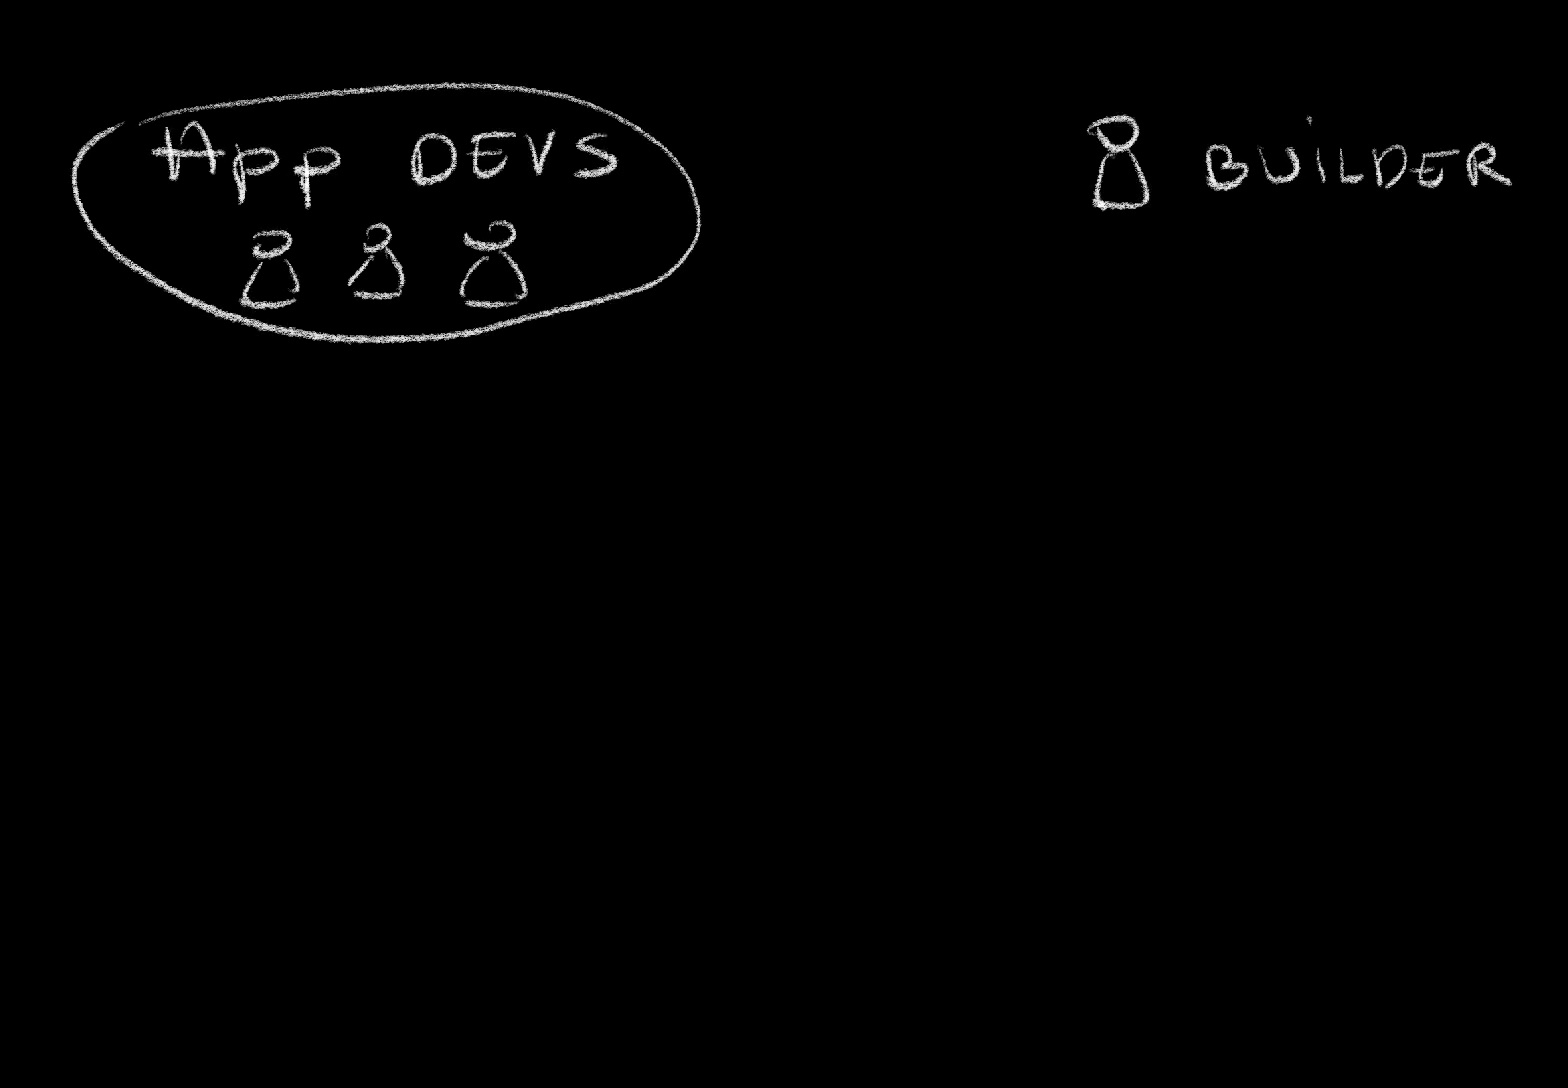 App DEVS
BUILDER